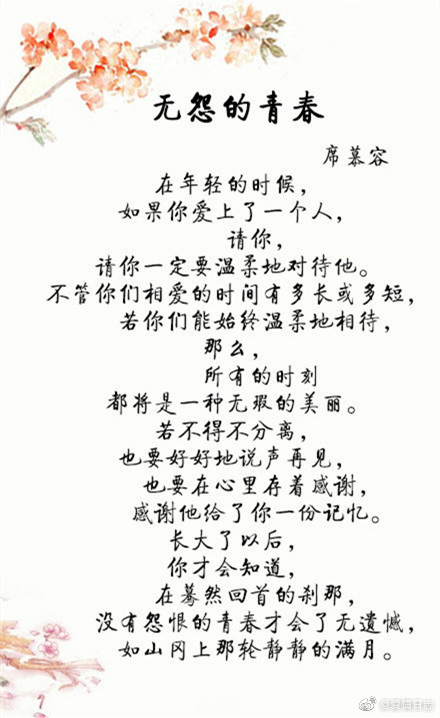 无怨的青春
席慕容
在年轻的时候，
如果你爱上了一个人，
请你，
请你一定要温柔地对待他。
不管你们相爱的时间有多长或多短，
若你们能始终温柔地相待，
那么，
所有的时刻
都将是一种无瑕的美丽。
若不得不分离，
也要好好地说声再见，
也要在心里存着感谢，
感谢他给了你一份记忆。
长大了以后，
你才会知道，
在蓦然回首的刹那，
没有怨恨的青春才会了无遗憾，
如山冈上那轮静静的满月。